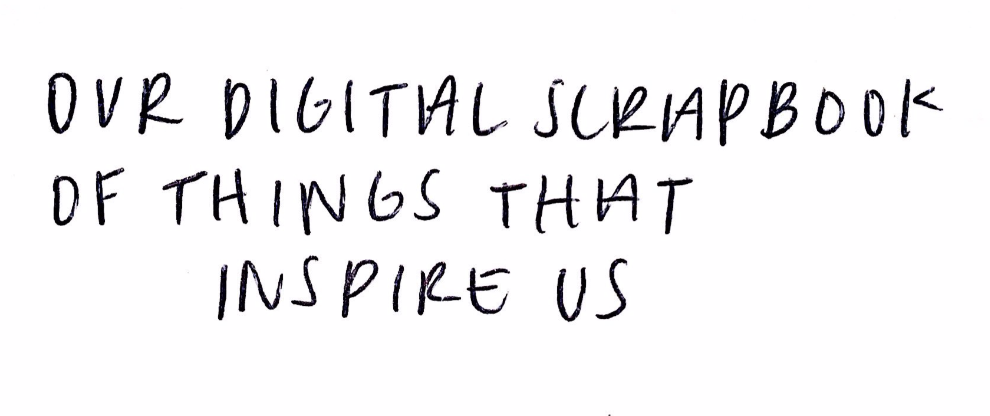 OUR DIGITAL SCRAPBOOK
OF THINGS THAT
INSPIRE US